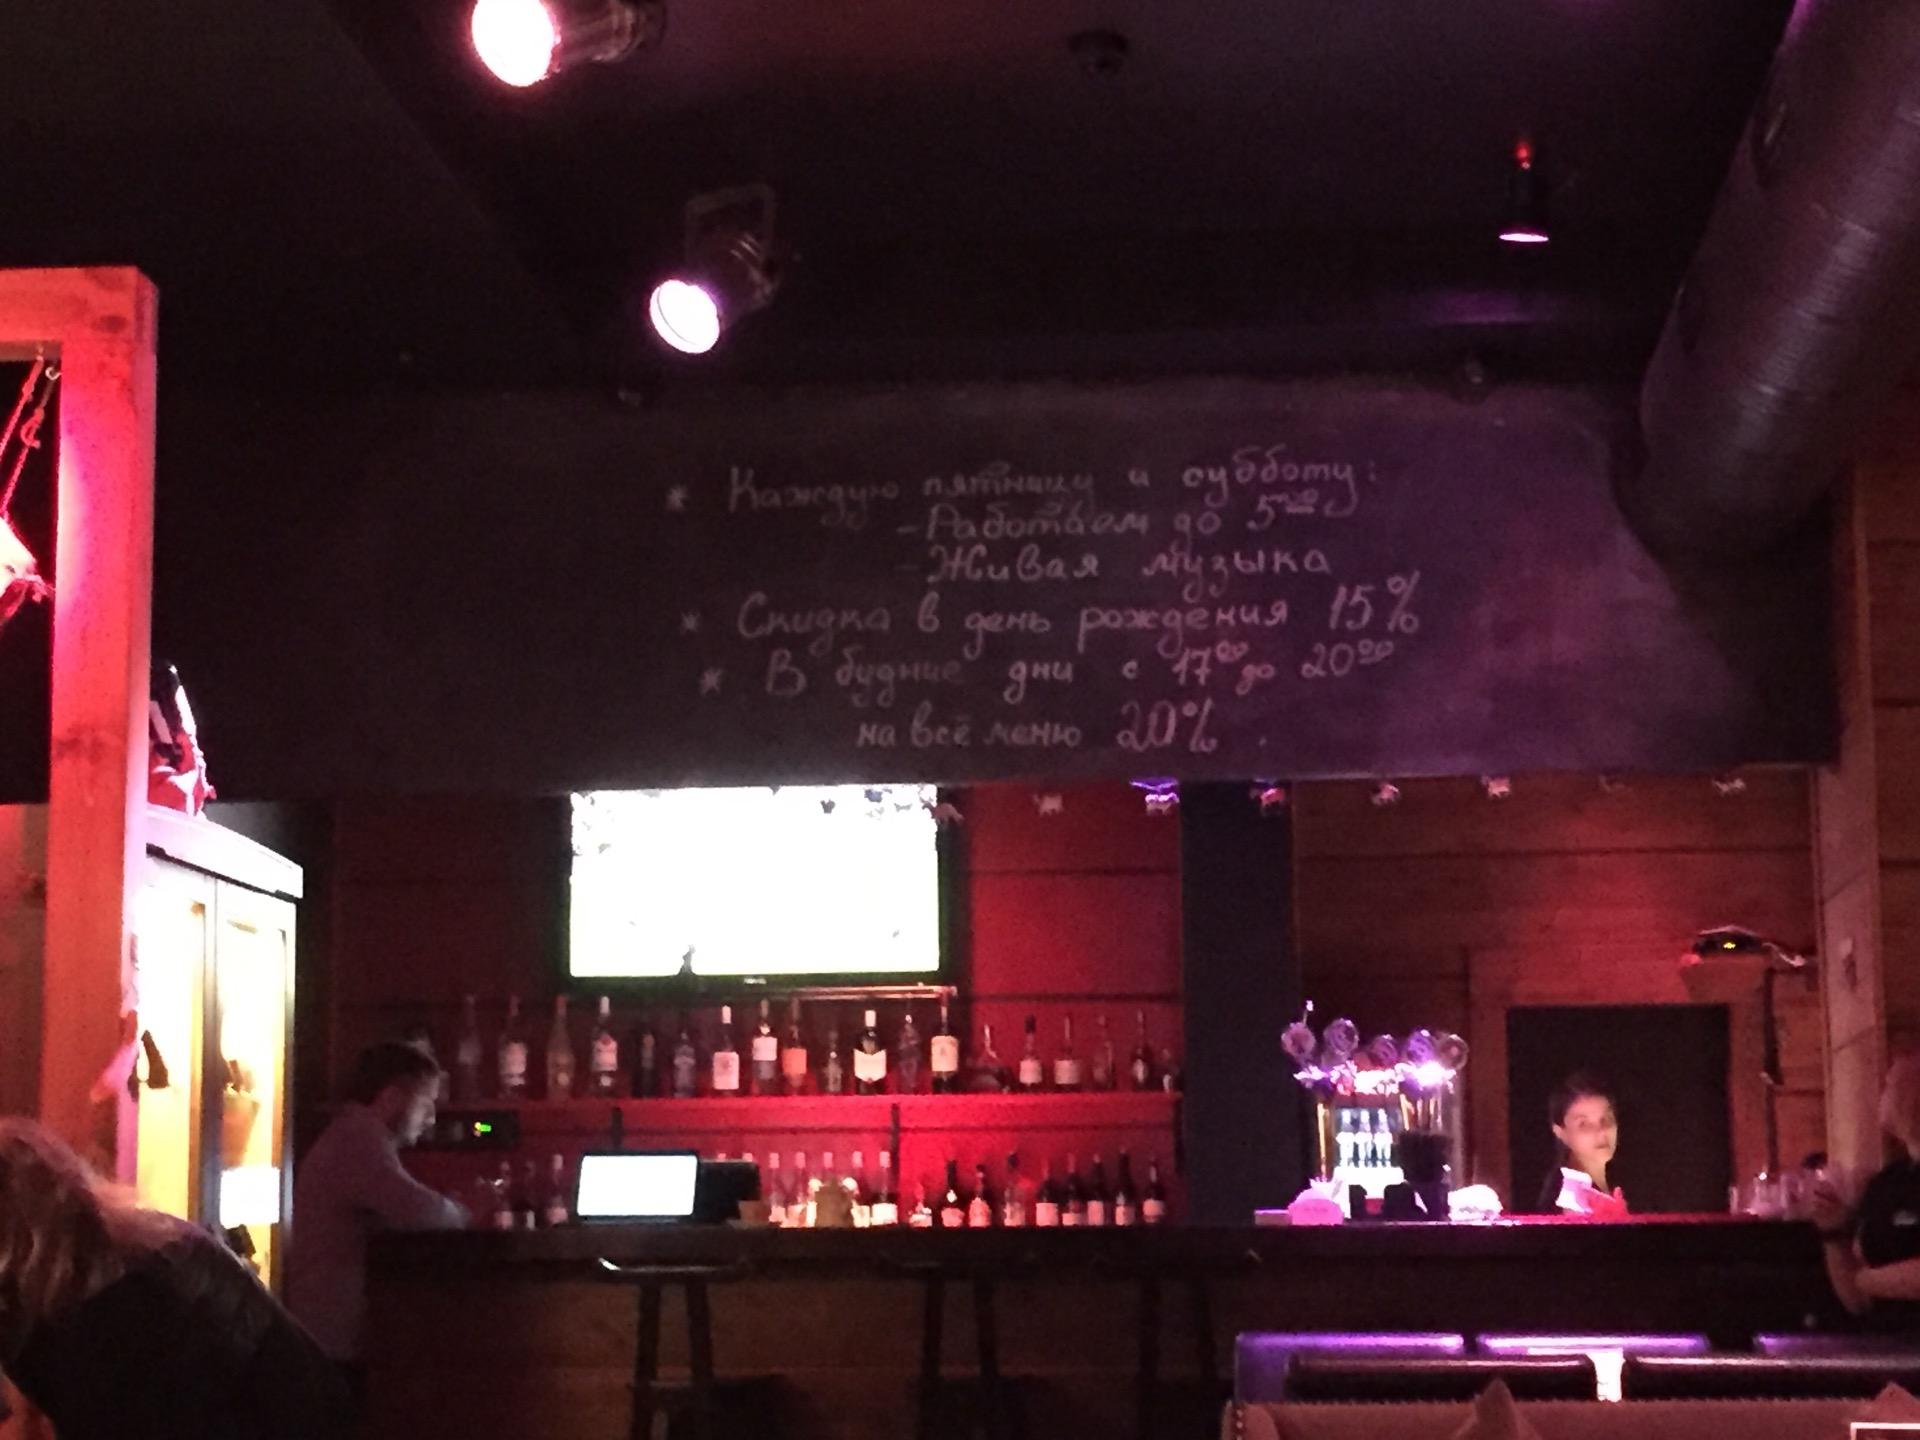 * Каждую пятницу и субботу:
- Работаем до 5⁰⁰
- Живая музыка
* Скидка в день рождения 15%
* В будние дни с 17⁰⁰ до 20⁰⁰
на всё меню 20%.